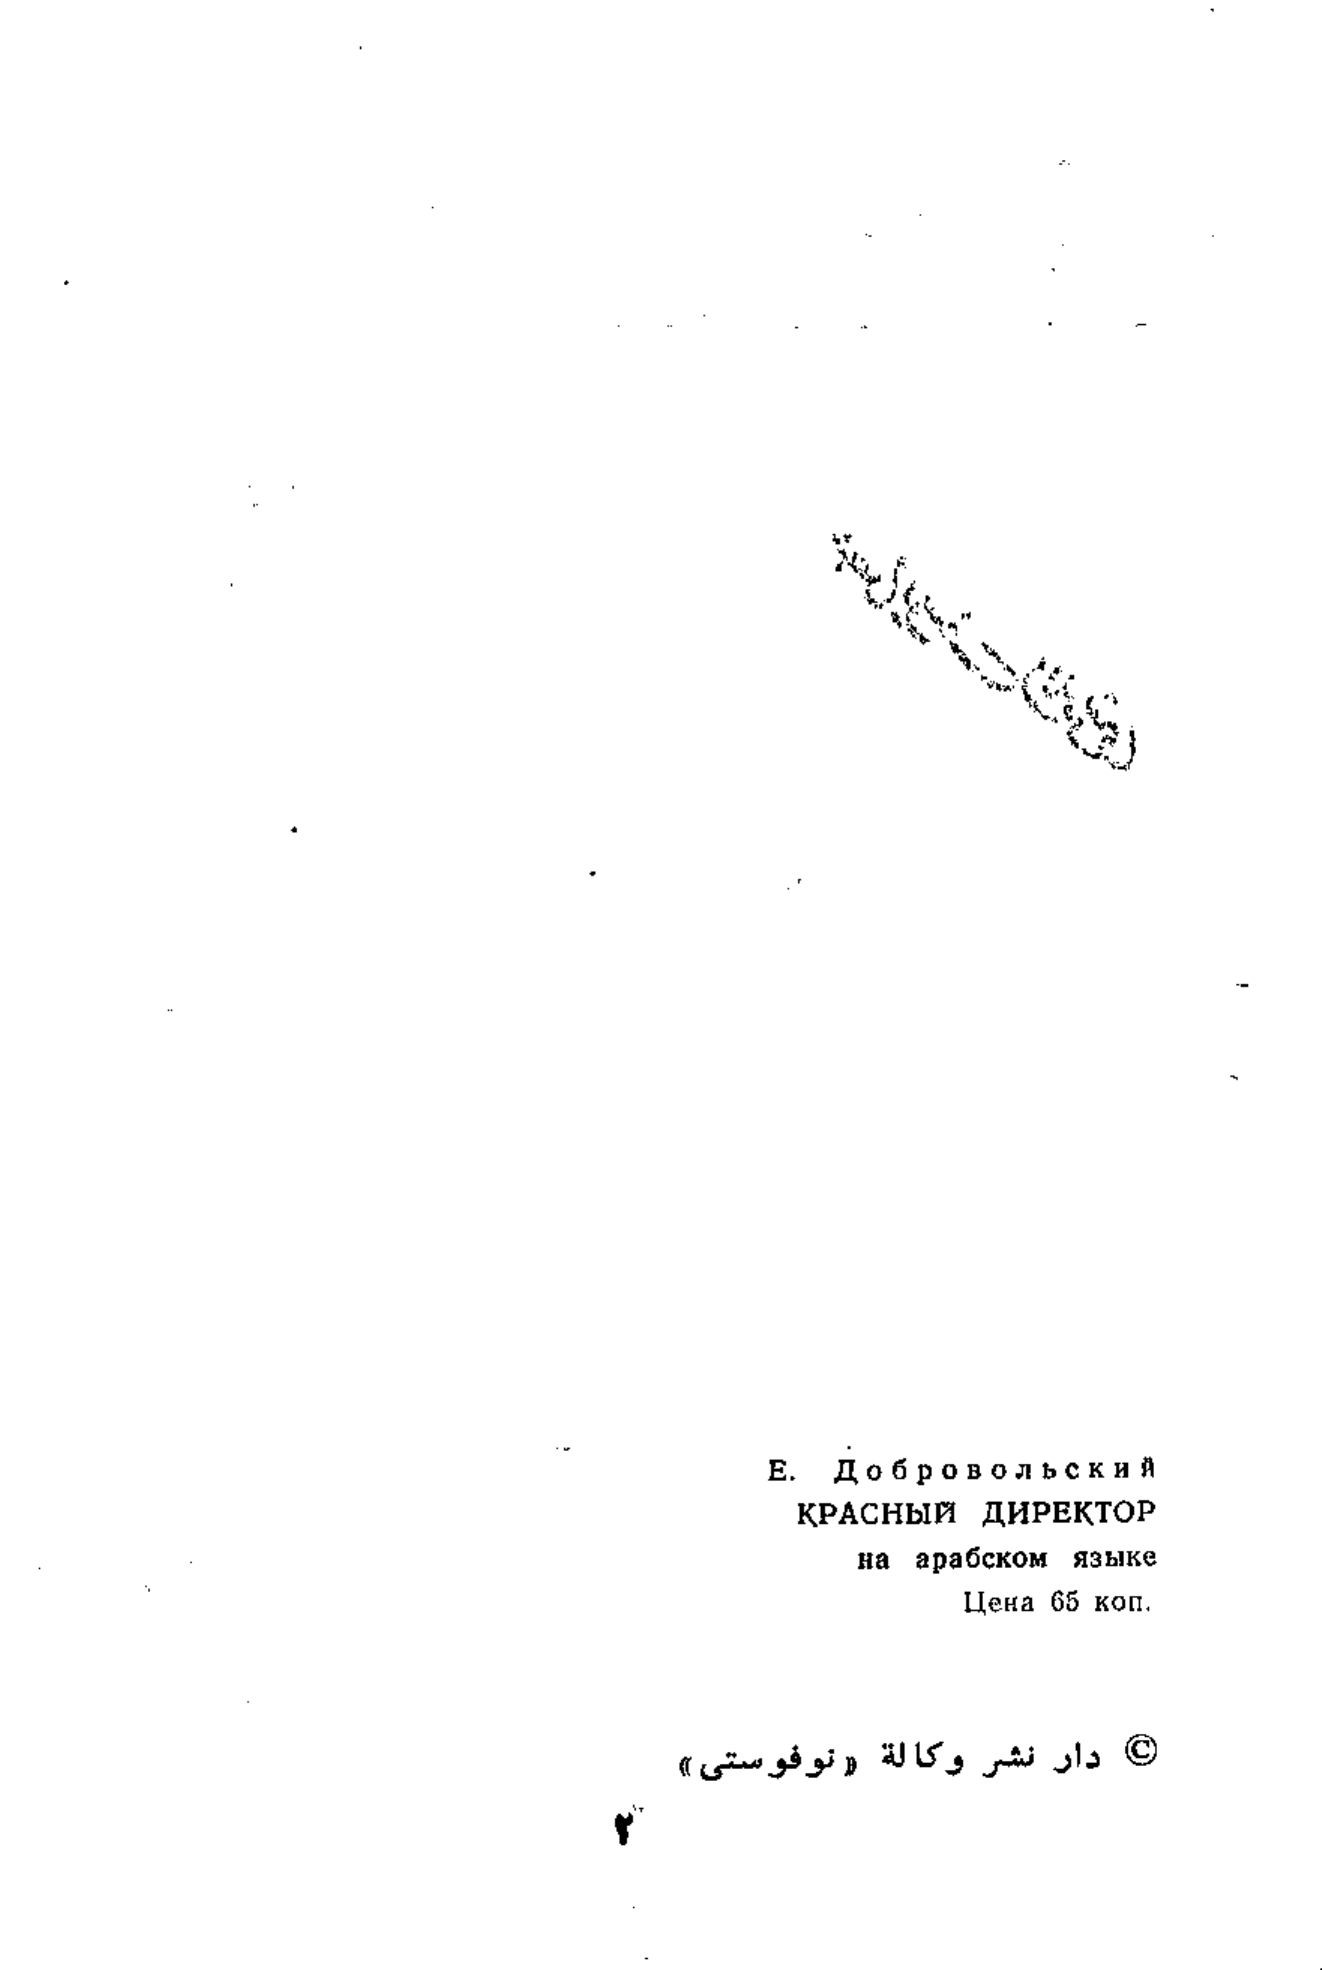 Е. Добровольский
КРАСНЫЙ ДИРЕКТОР
на арабском языке
Цена 65 коп.
© دار نشر وكالة «نوفوستى»
٢